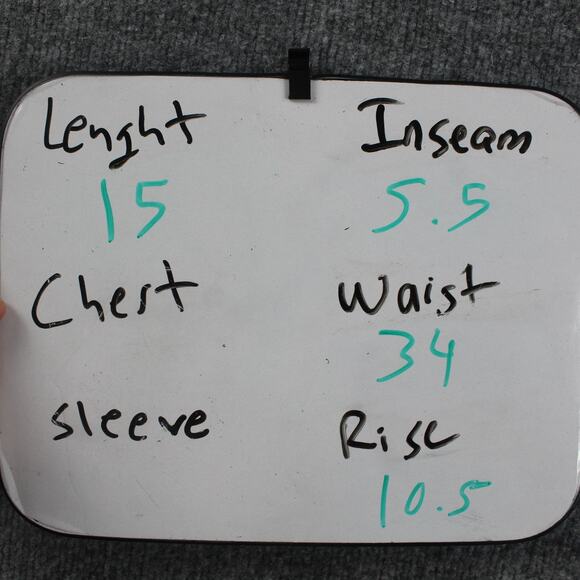 Lenght
15
Chest
sleeve
Inseam
5.5
Waist
34
Rise
10.5